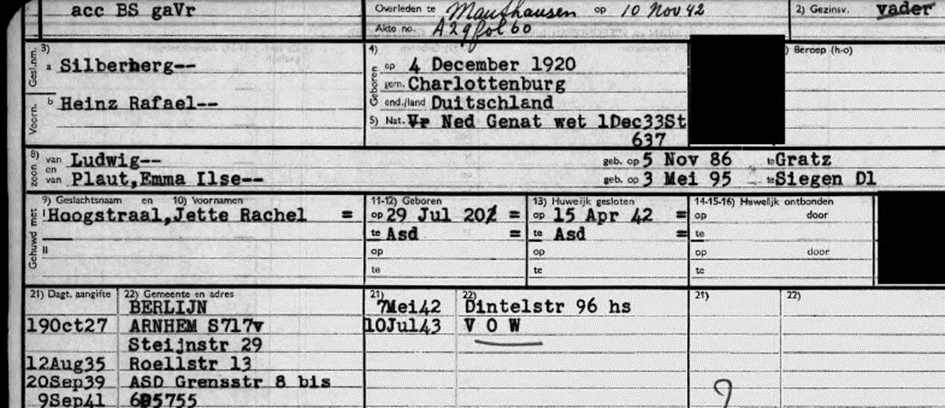 acc BS gaVr
Overleden te Mauthausen op 10 Nov 42
2) Gezinsv. vader
Akte no. A29 fol 60
Gesl.nm. 3) a Silberberg--
Voorn. b Heinz Rafael--
4) Geboren op 4 December 1920
gem. Charlottenburg
ond./land Duitschland
5) Nat. Vr Ned Genat wet 1Dec33St
637
) Beroep (h-o)
8) zoon van Ludwig-- geb. op 5 Nov 86 te Gratz
en van Plaut,Emma Ilse-- geb. op 3 Mei 95 te Siegen Dl
Gehuwd met 9) Geslachtsnaam en 10) Voornamen
I Hoogstraal,Jette Rachel =
II
11-12) Geboren
op 29 Jul 20 =
te Asd =
op
te
13) Huwelijk gesloten
op 15 Apr 42 =
te Asd =
op
te
14-15-16) Huwelijk ontbonden
op door
te
op door
te
21) Dagt. aangifte 22) Gemeente en adres
BERLIJN
19Oct27 ARNHEM S717v
Steijnstr 29
12Aug35 Roellstr 13
20Sep39 ASD Grensstr 8 bis
9Sep41 5755
21) 22)
7Mei42 Dintelstr 96 hs
10Jul43 V O W
21) 22)